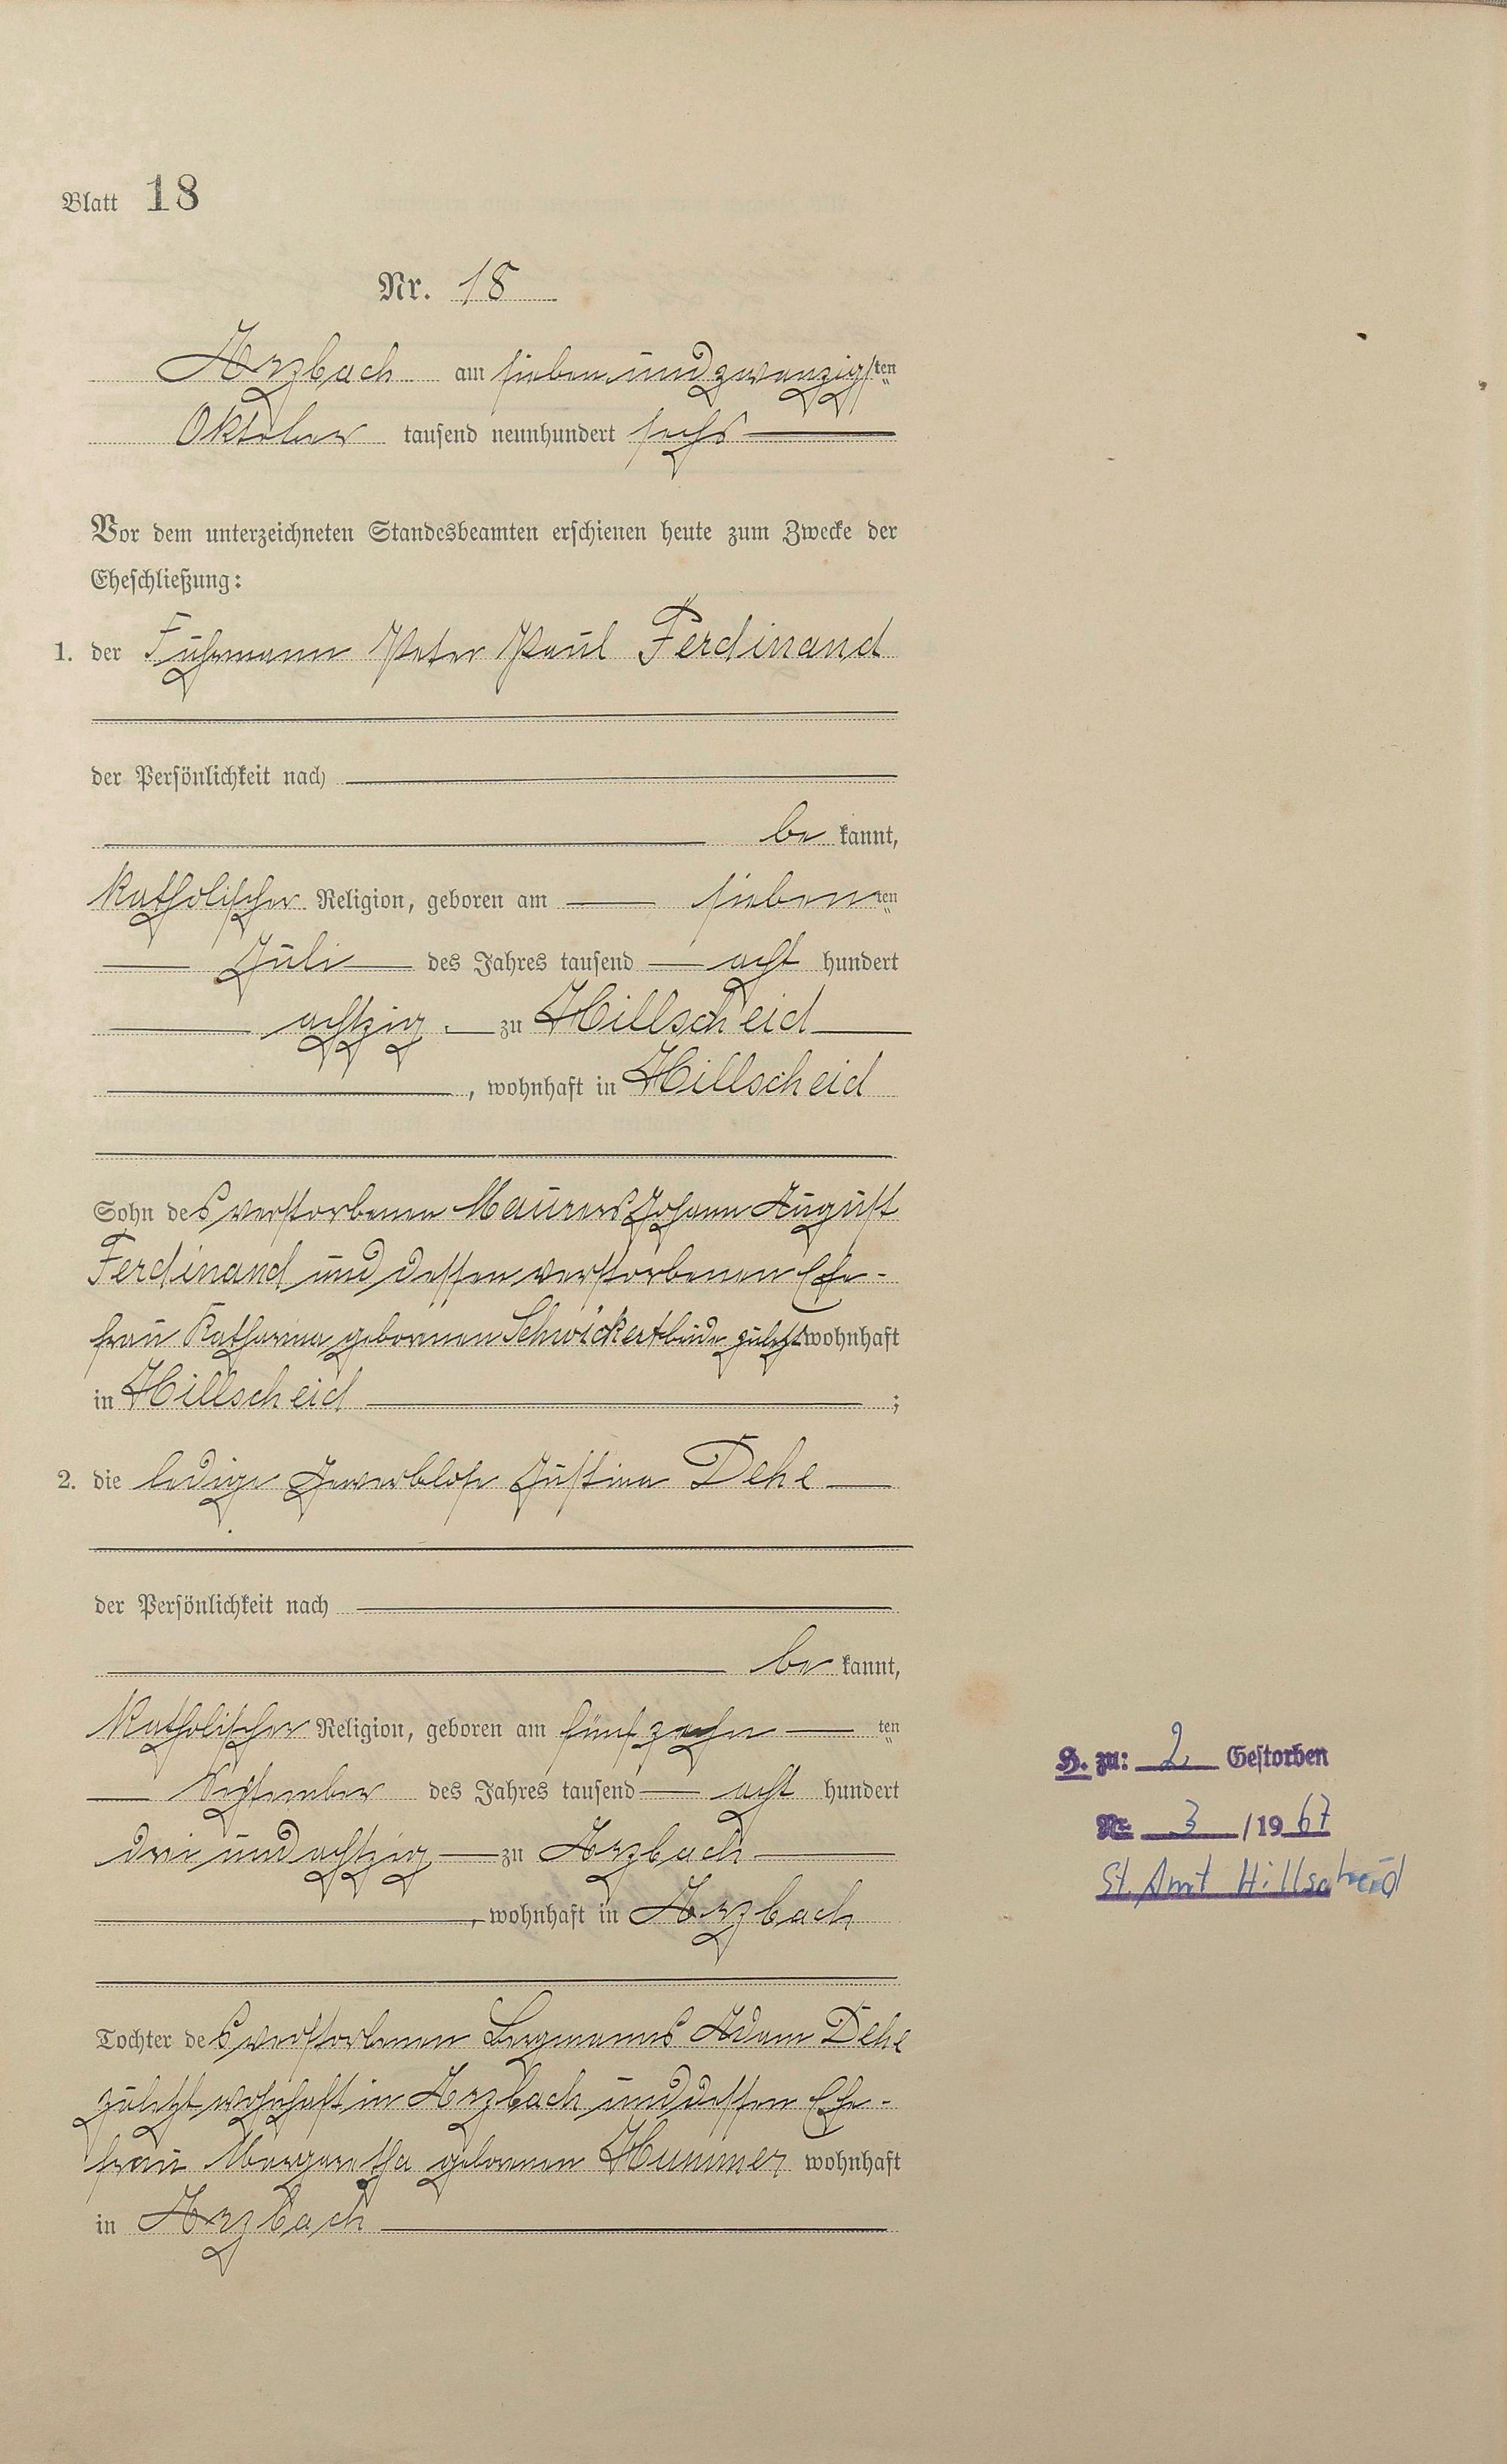 Blatt 18
Nr. 18
Arzbach am siebenundzwanzigsten
Oktober tausend neunhundert sechs
Vor dem unterzeichneten Standesbeamten erschienen heute zum Zwecke der
Eheschließung:
1. der Fuhrmann Peter Paul Ferdinand
der Persönlichkeit nach
be kannt,
katholischer Religion, geboren am siebenten
Juli des Jahres tausend acht hundert
achtzig zu Hillscheid
, wohnhaft in Hillscheid
Sohn des verstorbenen Maurers Johann August
Ferdinand und dessen verstorbenen Ehe-
frau Katharina geborenen Schwickert beide zuletzt wohnhaft
in Hillscheid ;
2. die ledige Gewerblose Justina Dehe
der Persönlichkeit nach
be kannt,
katholischer Religion, geboren am fünfzehn ten
September des Jahres tausend acht hundert
drei und achtzig zu Arzbach
, wohnhaft in Arzbach
Tochter des verstorbenen Bergmanns Adam Dehe
zuletzt wohnhaft in Arzbach und dessen Ehe-
frau Margaretha geborenen Hummer wohnhaft
in Arzbach
H. zu: 2 Gestorben
Nr. 3 / 19 67
St. Amt Hillscheid